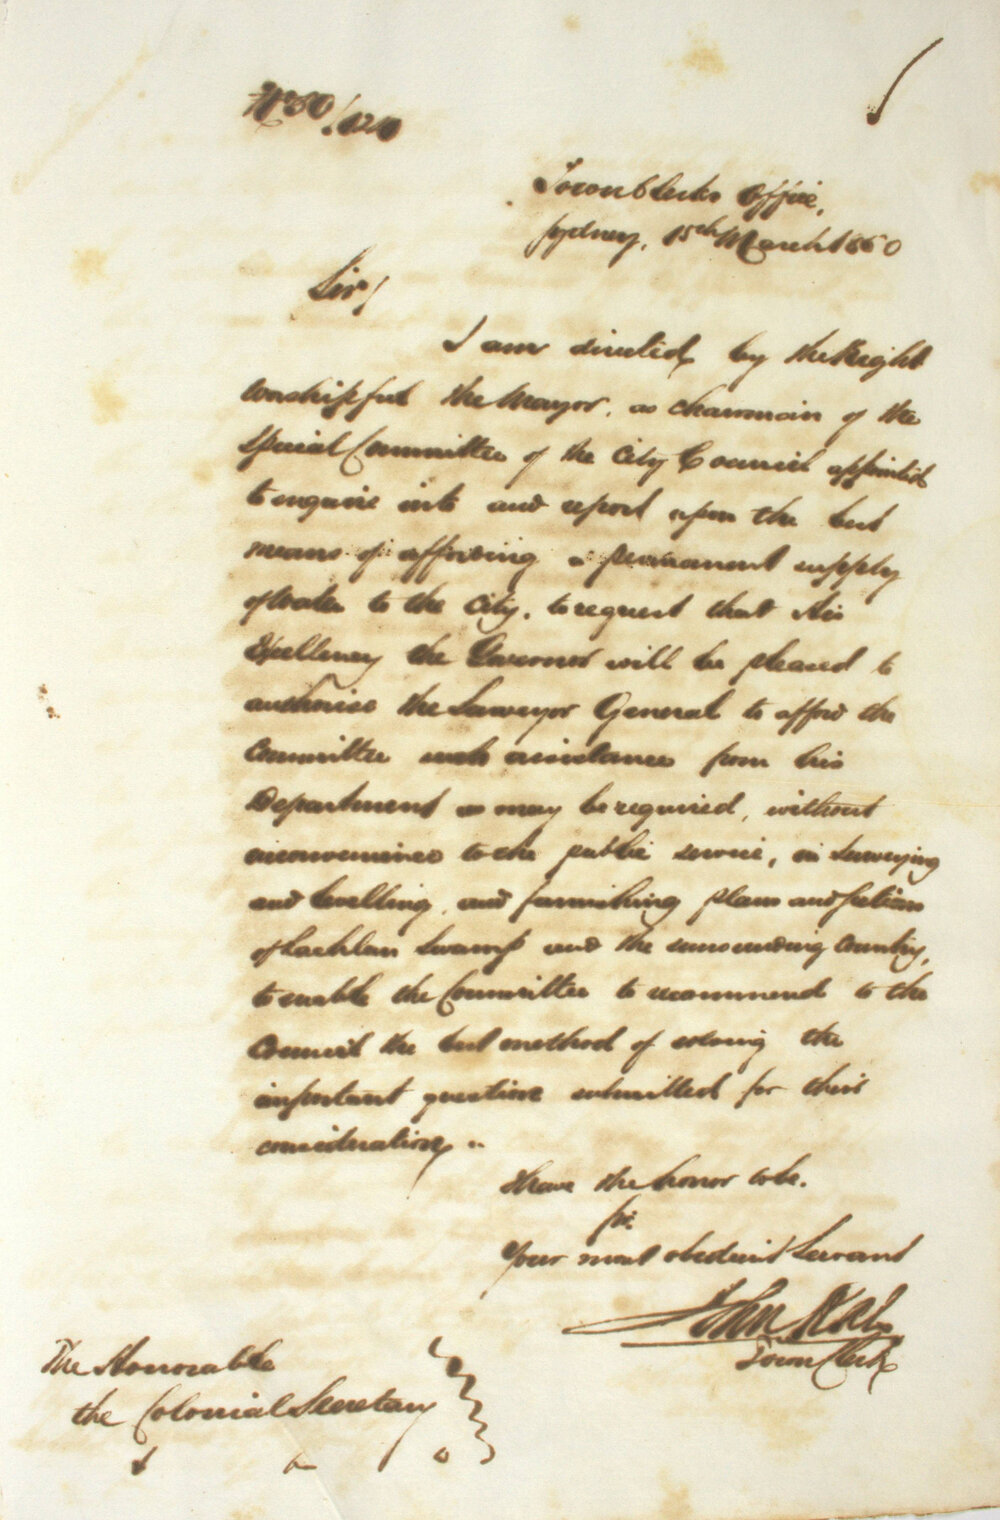 No 60/120
Town Clerks Office,
Sydney, 15th March 1860
Sir,
I am directed by the Right
Worshipful the Mayor, as chairman of the
Special Committee of the City Council appointed
to enquire into and report upon the best
means of affording a permanent supply
of Water to the City, to request that His
Excellency the Governor will be pleased to
authorise the Surveyor General to afford the
Committee such assistance from his
Department as may be required, without
inconvenience to the public service, in surveying
and levelling, and furnishing plans and sections
of Lachlan Swamp and the surrounding Country,
to enable the Committee to recommend to the
Council the best method of solving the
important question submitted for their
consideration,
I have the honor to be.
Sir,
Your most obedient Servant
John
Town Clerk
The Honorable
the Colonial Secretary